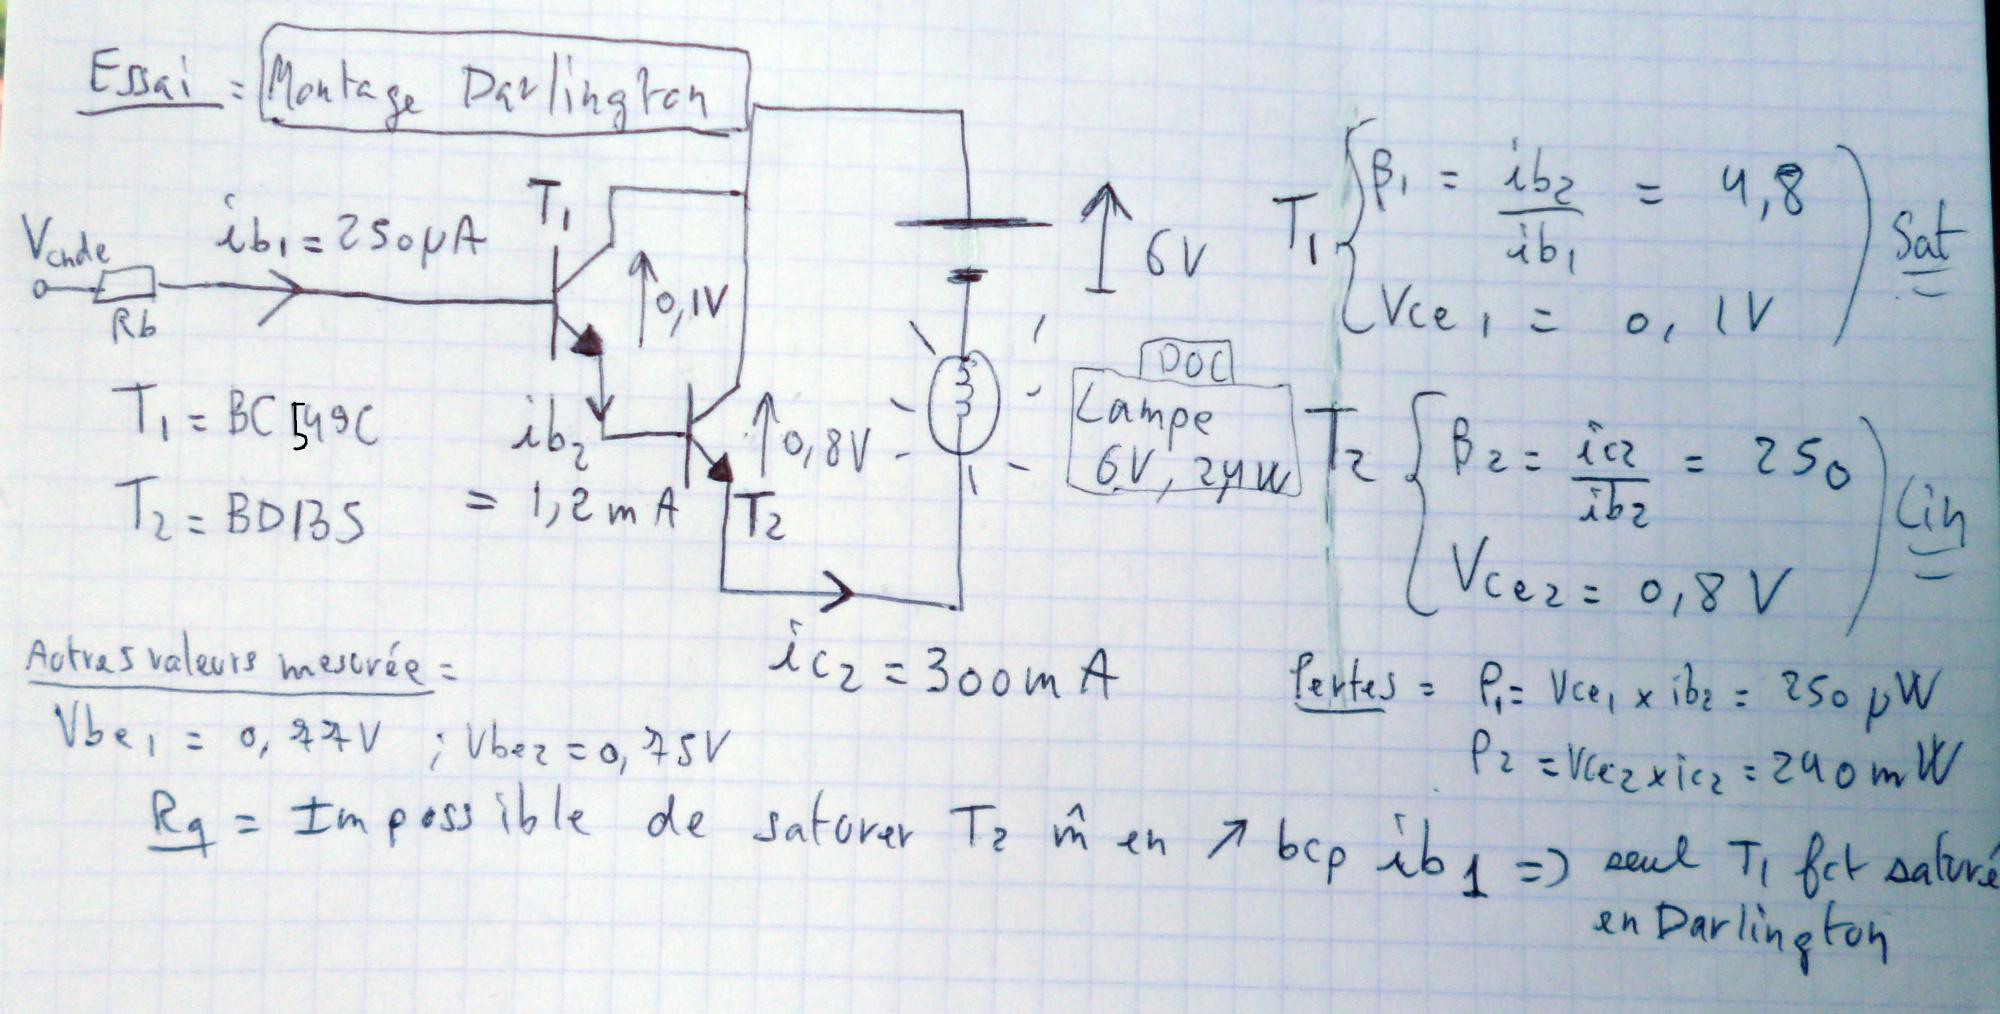 Essai = Montage Darlington
Vcnde
Rb
ib1 = 250µA
T1
0,1V
6V
T1 = BC549C
T2 = BD135
ib2
= 1,2mA
0,8V
T2
DOC
Lampe
6V, 24W
ic2 = 300mA
T1 { β1 = ib2/ib1 = 4,8
Vce1 = 0,1V ) Sat
T2 { β2 = ic2/ib2 = 250
Vce2 = 0,8V ) Lin
Autres valeurs mesurée =
Vbe1 = 0,77V ; Vbe2 = 0,75V
Pertes = P1 = Vce1 x ib2 = 250µW
P2 = Vce2 x ic2 = 240mW
Rq = Impossible de saturer T2 m̂ en ↗ bcp ib1 => seul T1 fct saturé
en Darlington